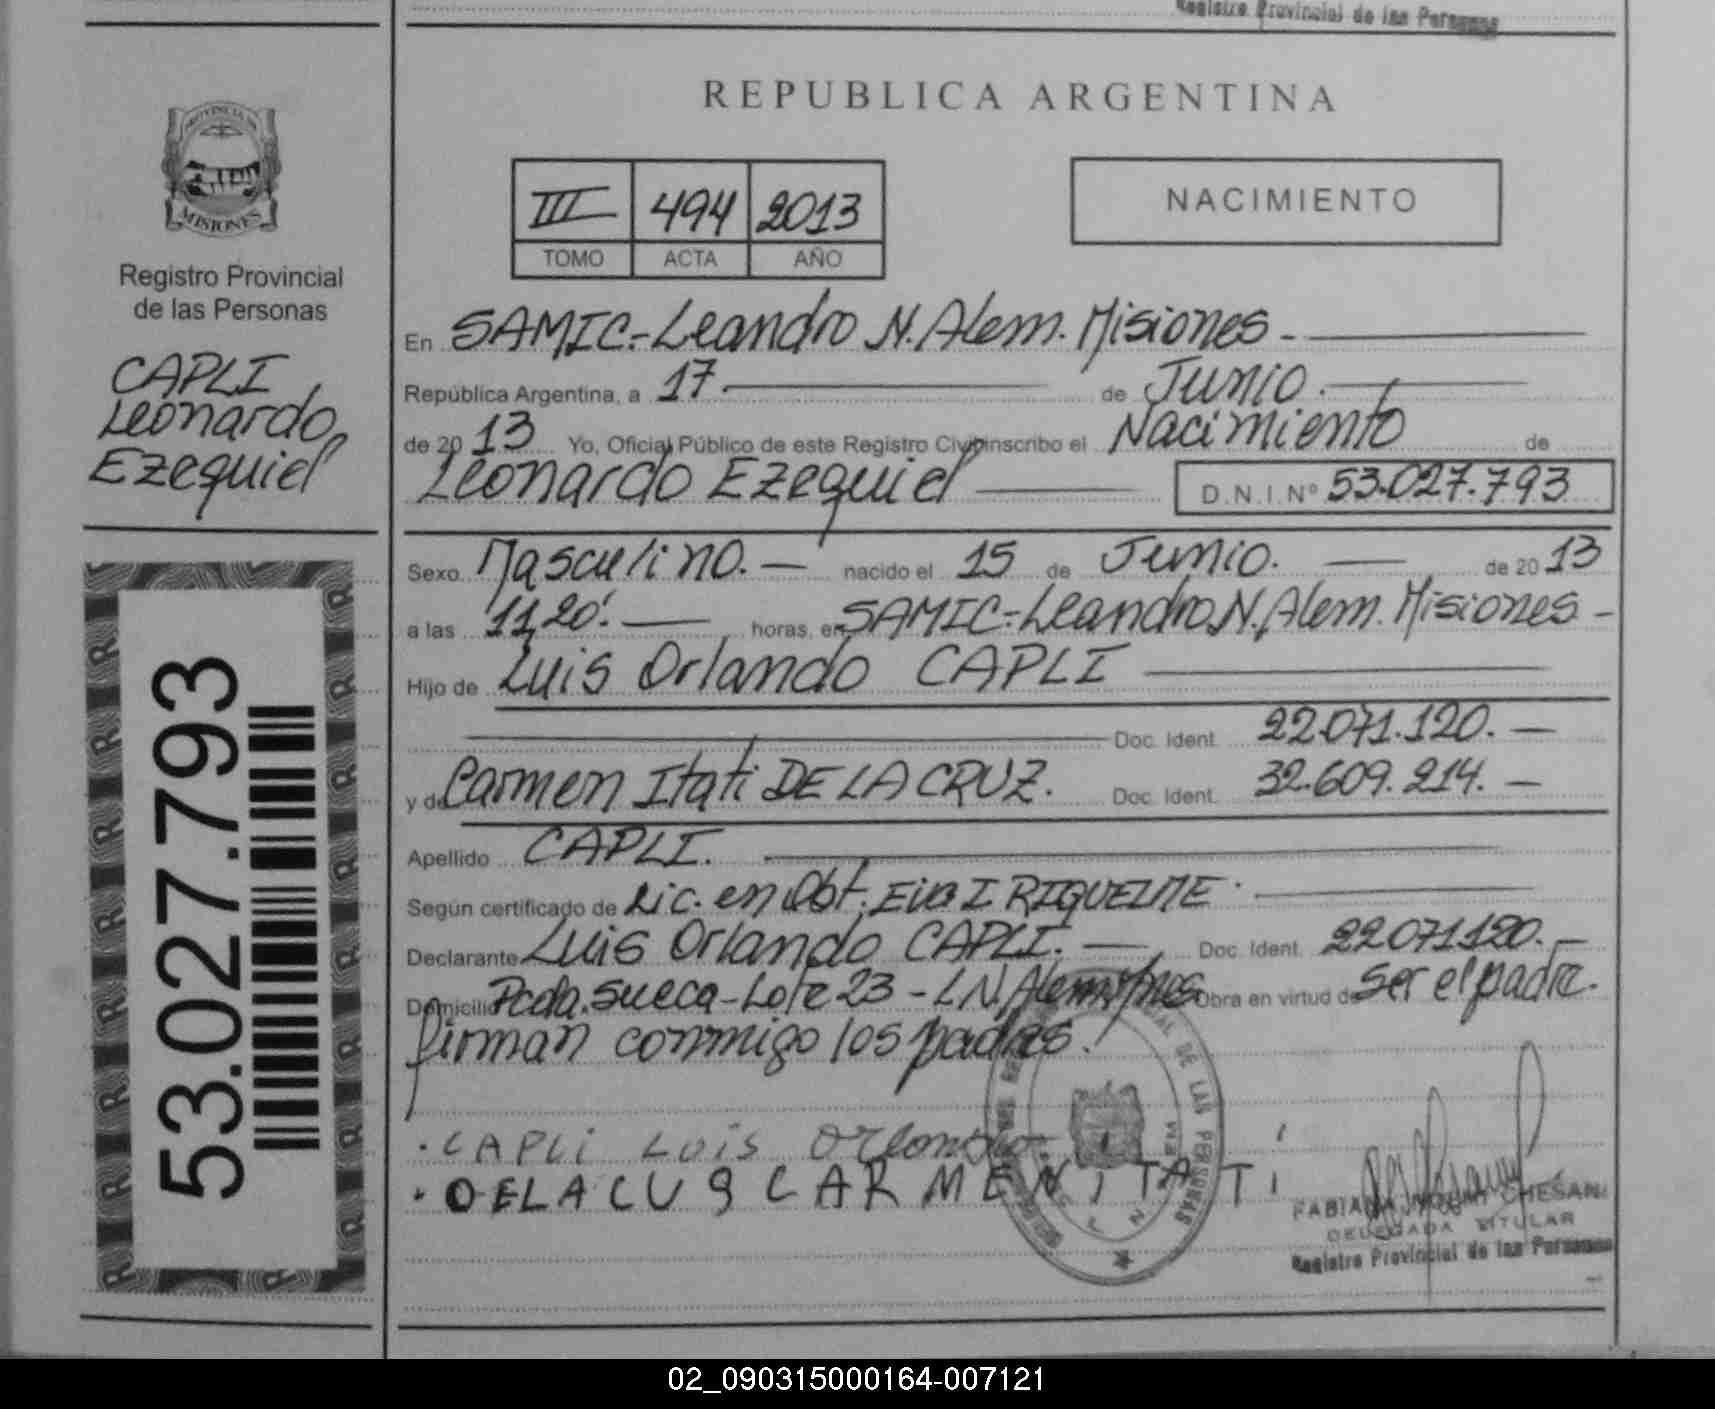 Registro Provincial de las Personas
REPUBLICA ARGENTINA
PROVINCIA DE
MISIONES
Registro Provincial
de las Personas
CAPLI
Leonardo
Ezequiel
53.027.793
III 494 2013
TOMO ACTA AÑO
NACIMIENTO
En SAMIC.-Leandro N. Alem. Misiones -
República Argentina, a 17. de Junio.
de 20 13 Yo, Oficial Público de este Registro Civil inscribo el Nacimiento de
Leonardo Ezequiel D.N.I. Nº 53.027.793
Sexo Masculino. nacido el 15 de Junio. de 20 13
a las 11,20'. horas, en SAMIC-Leandro N. Alem. Misiones -
Hijo de Luis Orlando CAPLI
Doc. Ident. 22.071.120. —
y de Carmen Itati DE LA CRUZ. Doc. Ident. 32.609.214. —
Apellido CAPLI.
Según certificado de Lic. en Obt. Eva I RIQUELME.
Declarante Luis Orlando CAPLI. — Doc. Ident. 22.071.120. —
Domicilio Pcda. Sueca-Lote 23 - L.N. Alem Mnes Obra en virtud de ser el padre.
firman conmigo los padres.
. CAPLi LUiS Orlando
. DELACUS CARMEN iTATi
DE LAS PERSONAS
DELEGADA TITULAR
Registro Provincial de las Personas
02_090315000164-007121